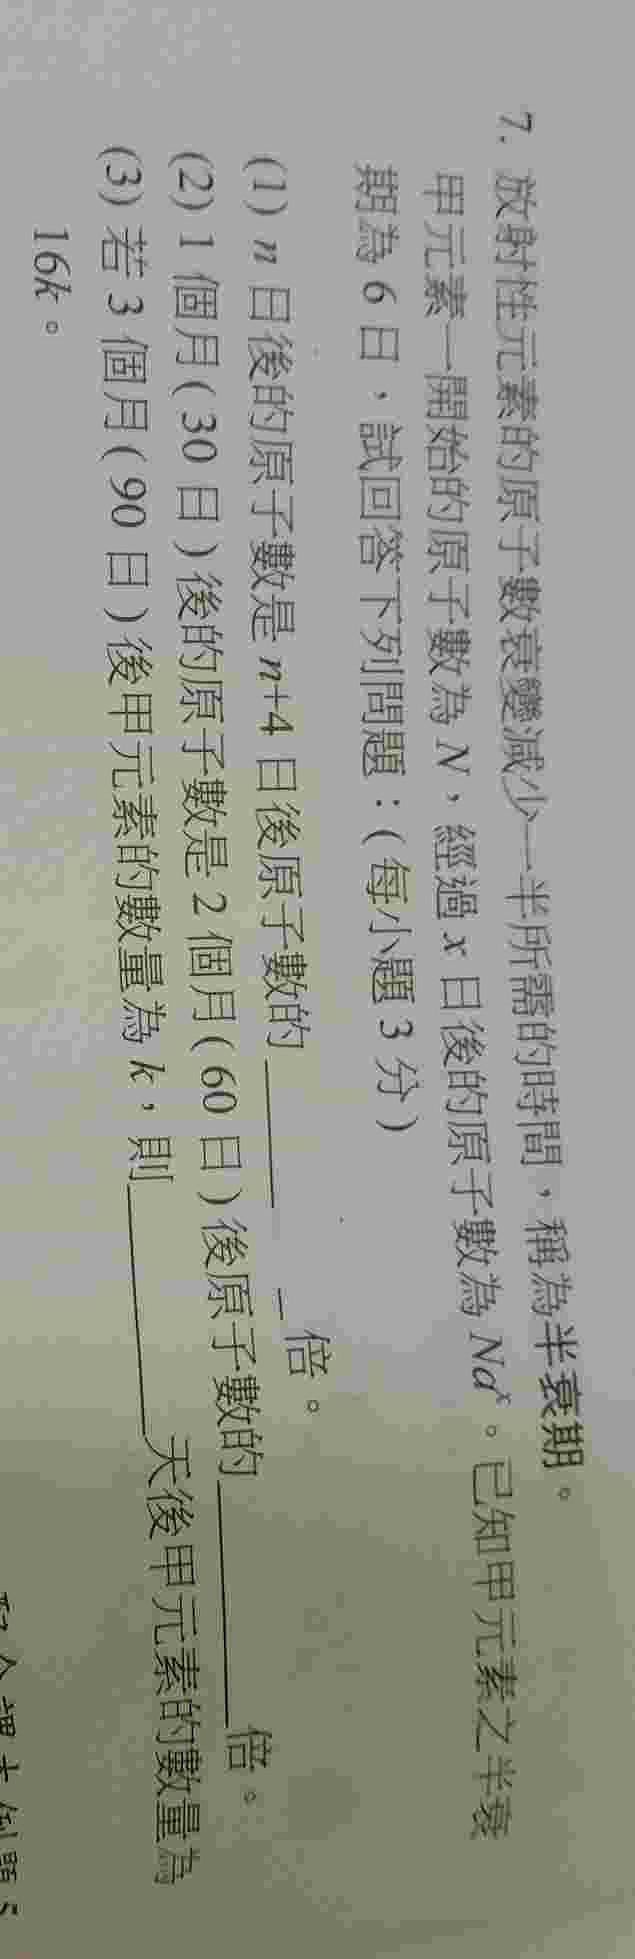 7. 放射性元素的原子數衰變減少一半所需的時間，稱為半衰期。
甲元素一開始的原子數為 N，經過 x 日後的原子數為 Naˣ。已知甲元素之半衰
期為 6 日，試回答下列問題：( 每小題 3 分 )
(1) n 日後的原子數是 n+4 日後原子數的 ______ 倍。
(2) 1 個月 ( 30 日 ) 後的原子數是 2 個月 ( 60 日 ) 後原子數的 ______ 倍。
(3) 若 3 個月 ( 90 日 ) 後甲元素的數量為 k，則 ______ 天後甲元素的數量為
16k。